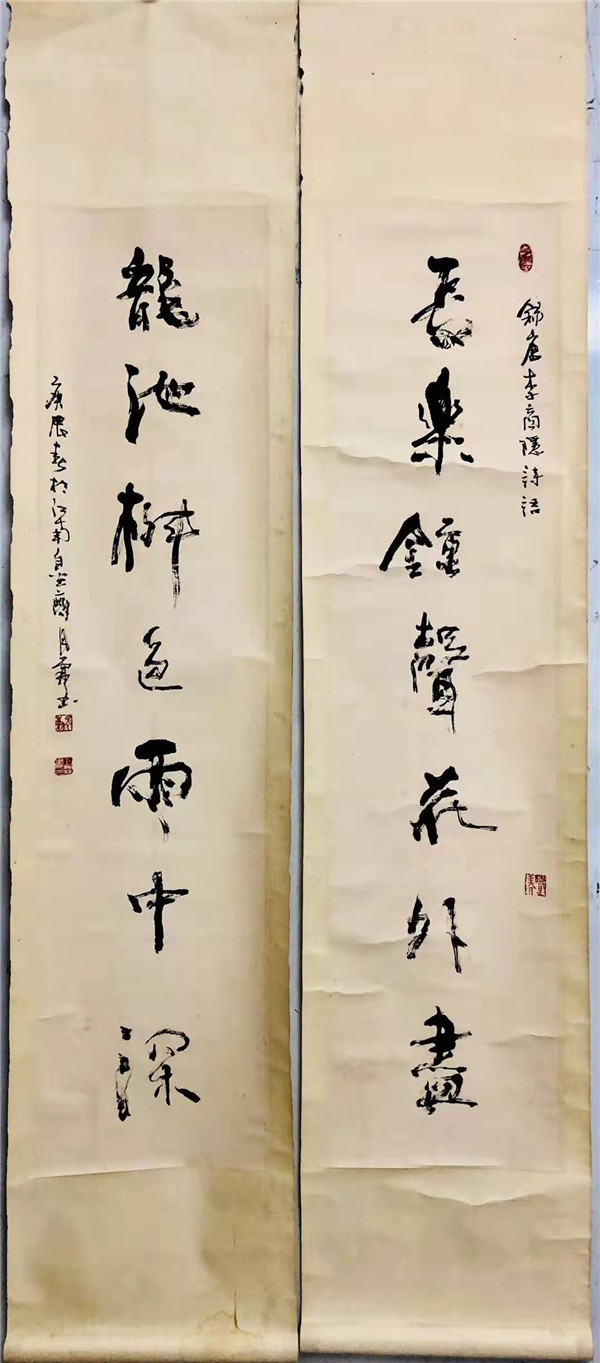 錄唐李商隱詩語
長樂鐘聲花外盡
龍池柳色雨中深
庚辰春於江南自齋月書